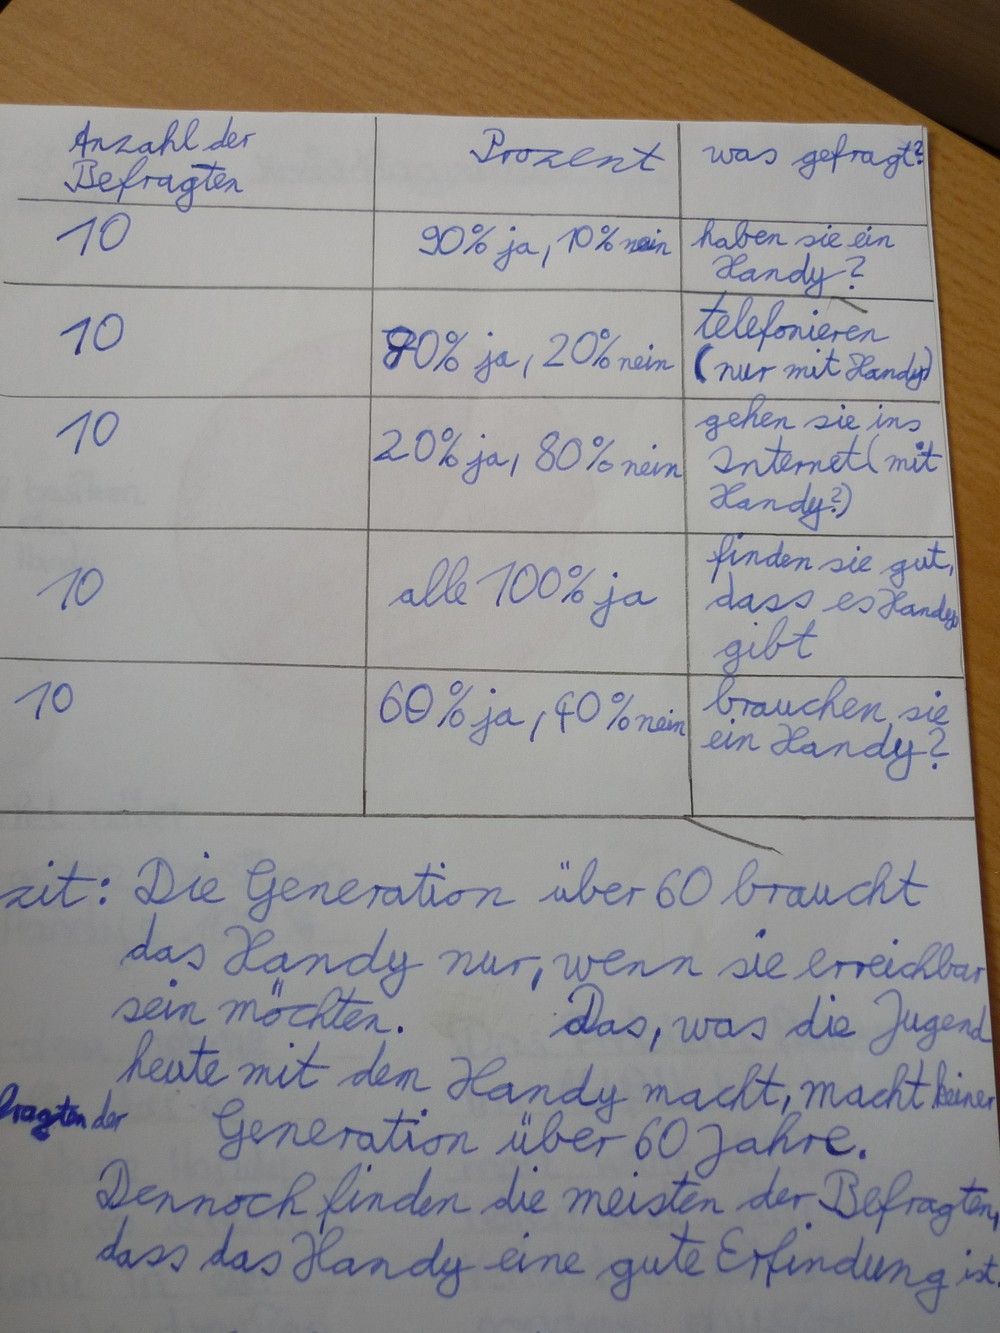 Anzahl der
Befragten
Prozent
was gefragt?
10
90% ja, 10% nein
haben sie ein
Handy?
10
20% nein
telefonieren
(nur mit Handy)
10
20% ja, 80% nein
gehen sie ins
Internet (mit
Handy?)
10
alle 100% ja
finden sie gut,
dass es Handys
gibt
10
60% ja, 40% nein
brauchen sie
ein Handy?
zit: Die Generation über 60 braucht
das Handy nur, wenn sie erreichbar
sein möchten. Das, was die Jugend
heute mit dem Handy macht, macht keiner
fragten der Generation über 60 Jahre.
Dennoch finden die meisten der Befragten,
dass das Handy eine gute Erfindung ist.